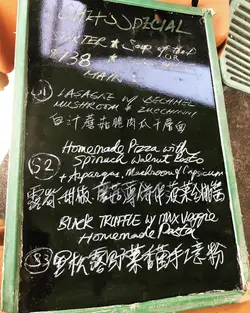 CHEF'S SPECIAL
STARTER ★ Soup of the d
$138 ★ FOR
MAIN
S1 LASAGNE w/ BECHMEL
MUSHROOM & ZUCCHINI
白汁蘑菇翠肉瓜千層面
S2 Homemade Pizza with
Spinach Walnut Pesto
+ Asparagus, Mushroom & Capsicum
露筍 胡椒 蘑菇 菠菜
BLACK TRUFFLE w/ MIX Veggie
Homemade Pasta
S3 黑松露野菜 手 粉